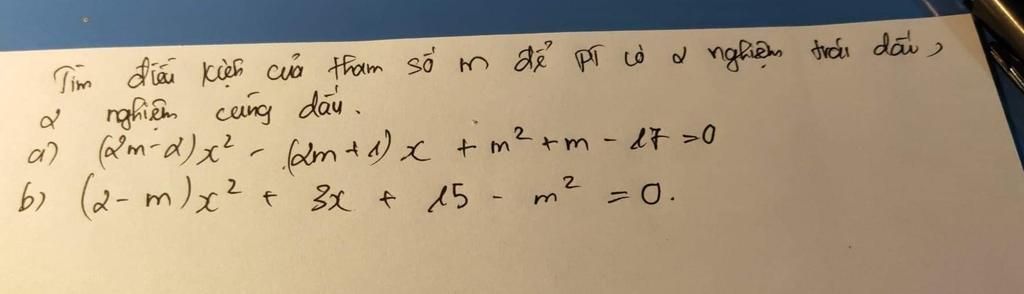 Tìm điều kiện của tham số m để pt có 2 nghiệm trái dấu,
2 nghiệm cùng dấu.
a) (2m-2)x² - (2m+1)x + m²+m-17=0
b) (2-m)x² + 3x + 15 - m² = 0.